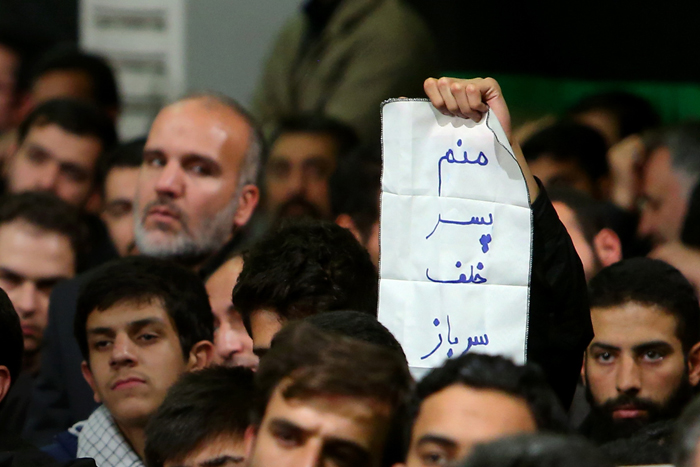 منم
پسر
خلف
سرباز